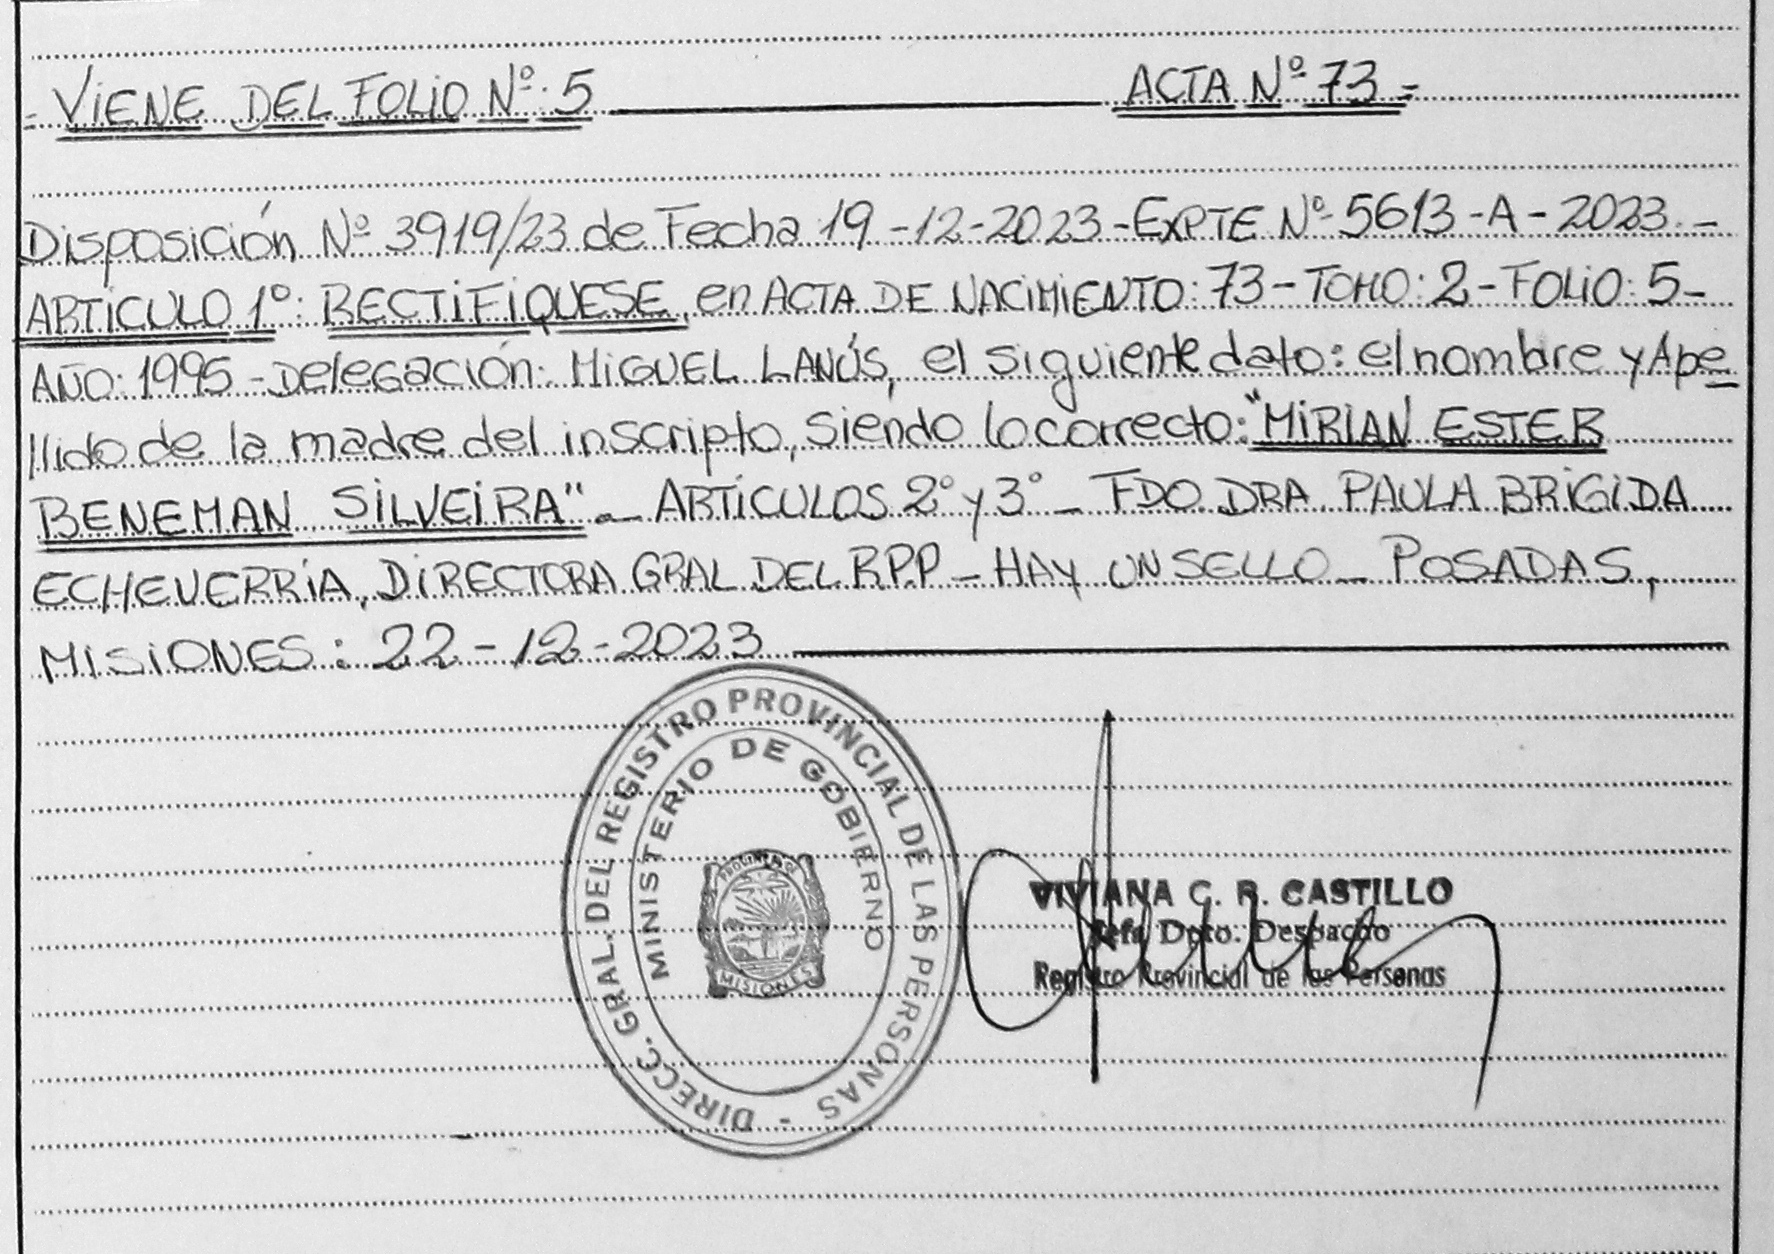 - VIENE DEL FOLIO Nº: 5 ACTA Nº 73 =
Disposición Nº 3919/23 de Fecha 19-12-2023 - EXPTE Nº 5613-A-2023.-
ARTÍCULO 1º: RECTIFÍQUESE, en ACTA DE NACIMIENTO: 73 - TOMO: 2 - FOLIO: 5 -
AÑO: 1995 - Delegación: MIGUEL LANÚS, el siguiente dato: el nombre y Ape
llido de la madre del inscripto, siendo lo correcto: "MIRIAN ESTER
BENEMAN SILVEIRA" - ARTÍCULOS 2º y 3º - FDO. DRA. PAULA BRIGIDA
ECHEVERRÍA, DIRECTORA GRAL DEL R.P.P - HAY UN SELLO - POSADAS,
MISIONES: 22-12-2023
DIRECC. GRAL. DEL REGISTRO PROVINCIAL DE LAS PERSONAS -
MINISTERIO DE GOBIERNO
MISIONES
VIVIANA C. R. CASTILLO
Jefa Dpto. Despacho
Registro Provincial de las Personas